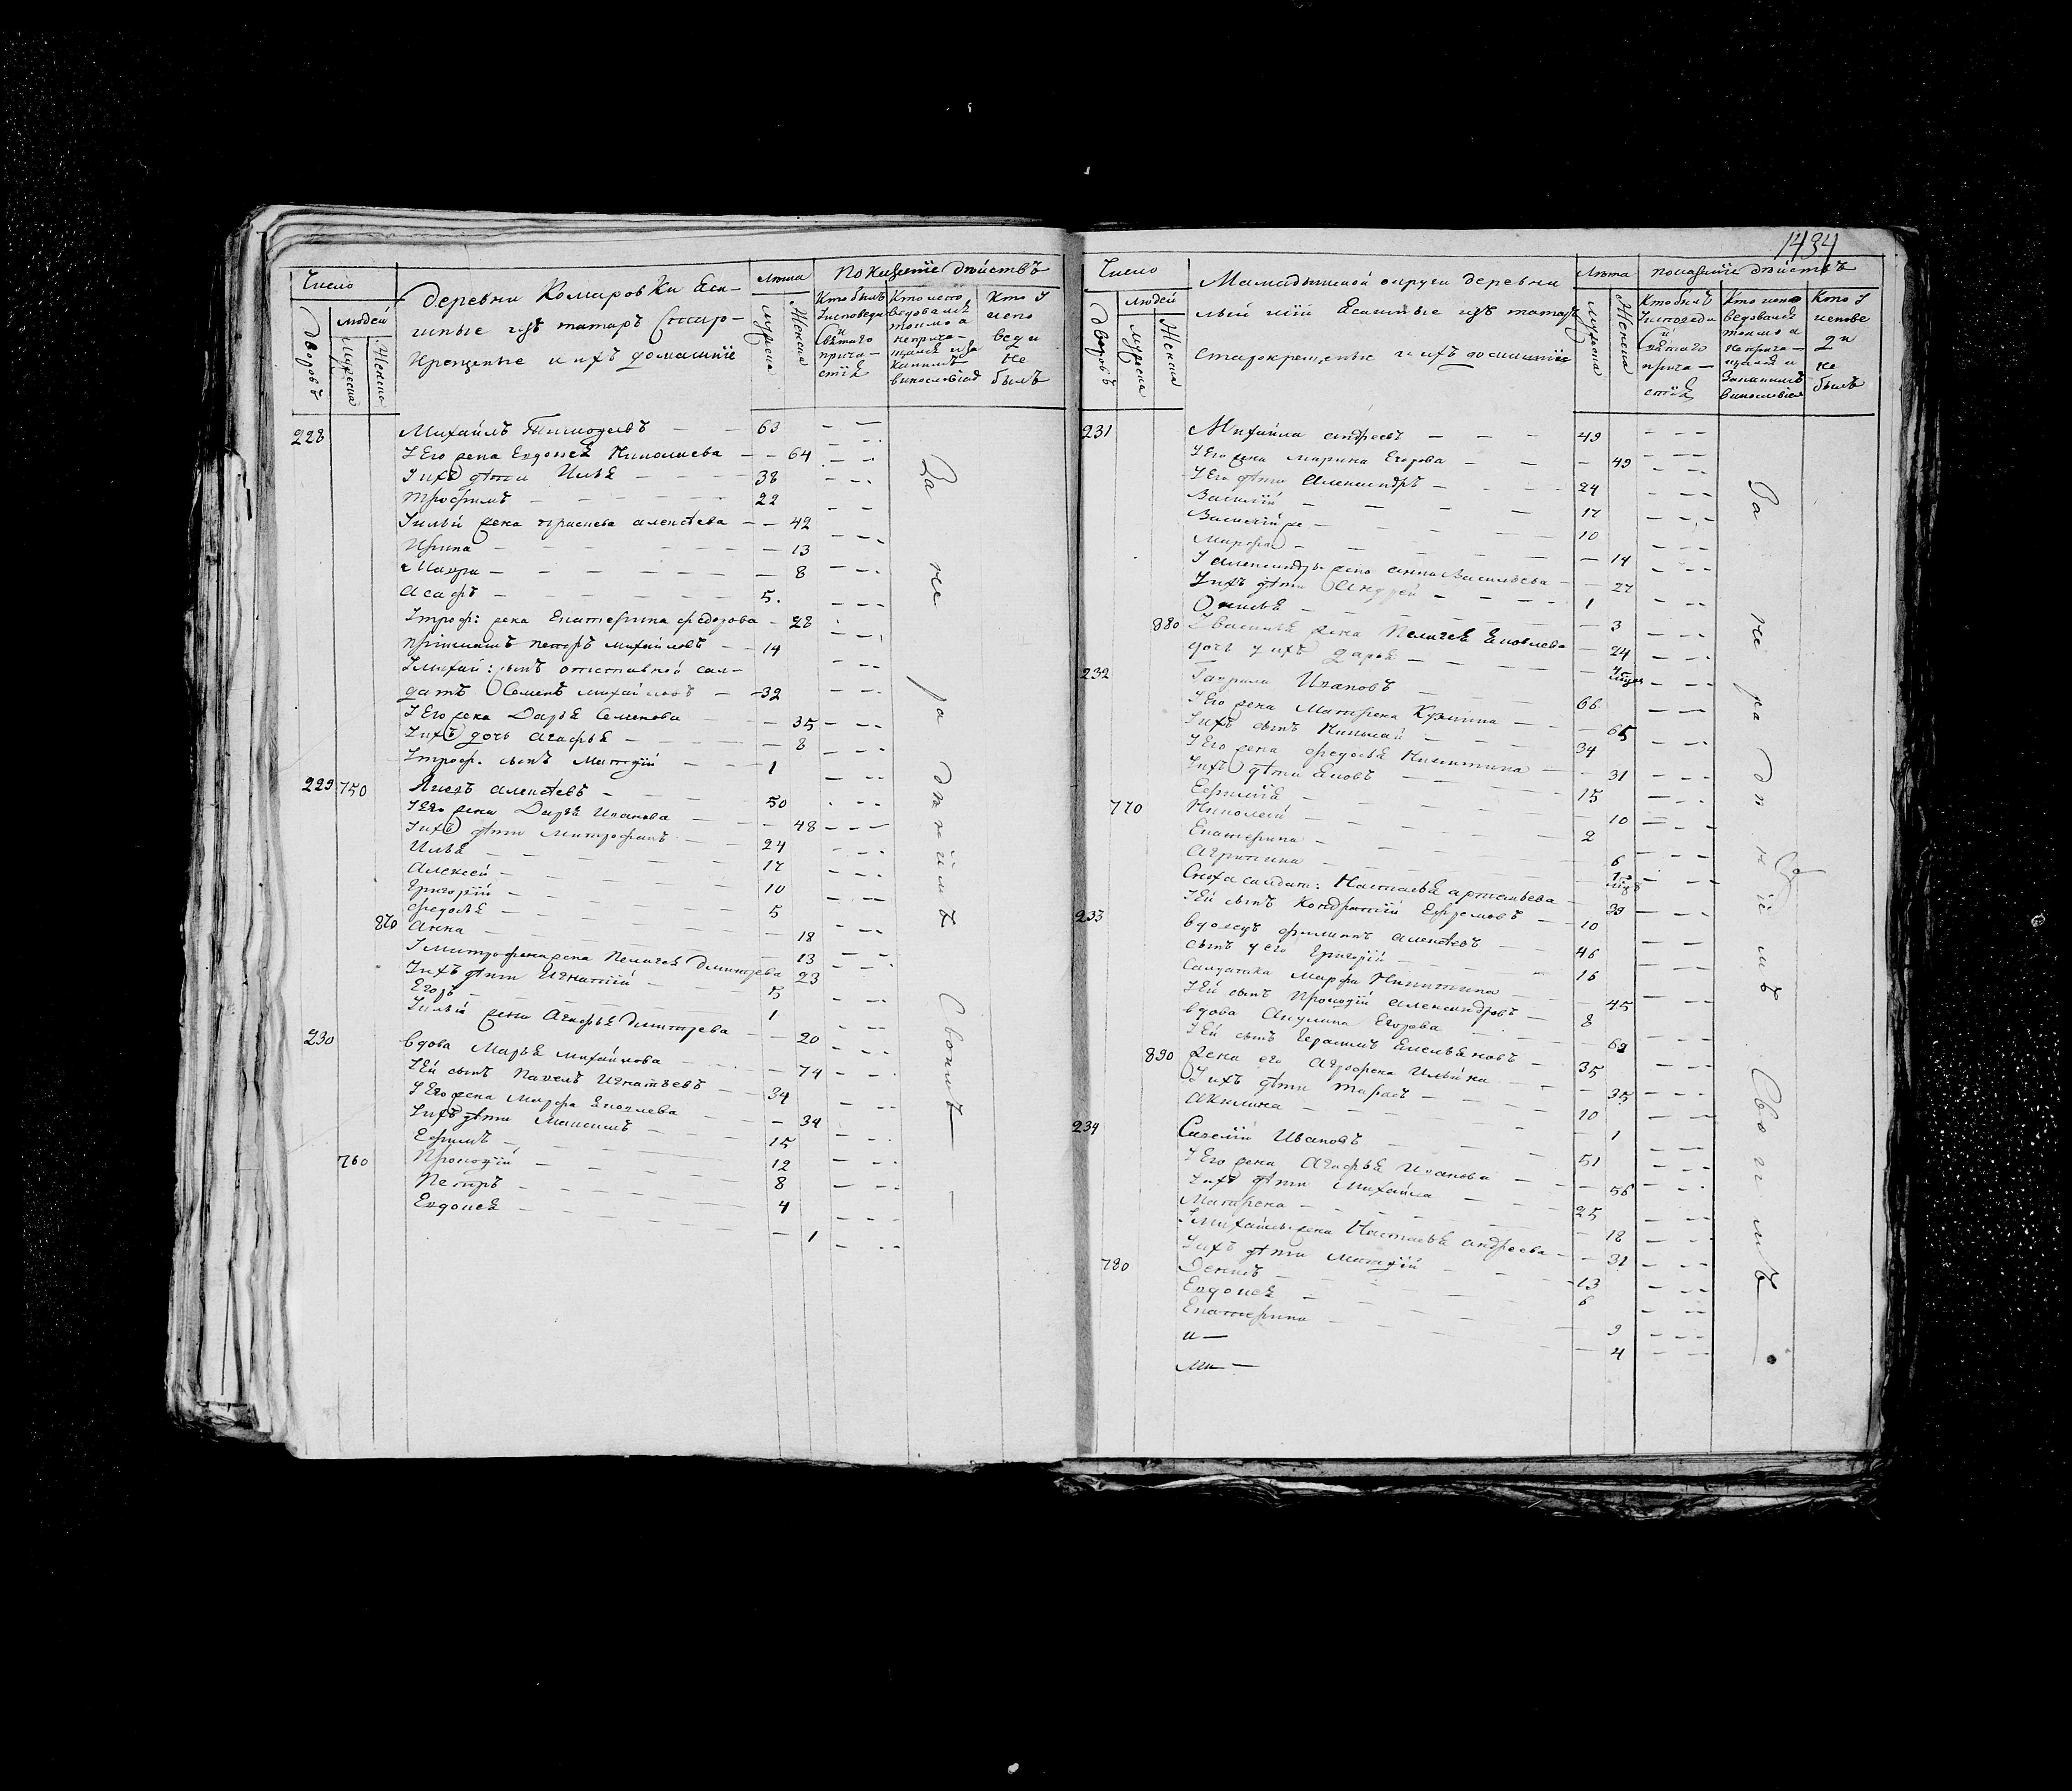 Число
дворовъ
людей
мужеска
Женска
деревни Комаровки Яса-
шные изъ татаръ Старо-
Крещеные и ихъ домашніе
лѣта
мужеска
Женска
показаніе дѣйствъ
Кто былъ
Уисповеди
и
Святаго
прича-
стія
Кто испо
ведовался
токмо а
неприча-
щался и за
какимъ
винословіемъ
Кто У
испо
веди
не
былъ
228 Михайлъ Тимофеевъ — — 63
У Его жена Евдокея Николаева — — 64
У ихъ дѣти Илья — — 38
трофимъ — — 22
У ильи жена алексѣева — — 42
Ирина — — 13
Мавра — — 8
асафъ — — 5.
У троф: жена Екатерина федорова — 28
приимышъ петръ михайловъ — — 14
У михай: сынъ отставной сол-
датъ Семенъ михайловъ — 32
У Его жена Дарья Семенова — 35
У ихъ дочь агафья — — 8
У троф. сынъ Матвій — — 1
229 750 Яковъ алексѣевъ — 50
У Его жена Дарья Иванова — 48
У ихъ дѣти Митрофанъ — 24
Илья — — 17
Алексей — — 10
Григорій — — 5
федосья — — 18
870 анна — — 13
У митрофана жена Пелагея дмитрева 23
У ихъ дѣти Игнатій — — 5
Егоръ — — 1
У ильи жена Агафья дмитрева — 20
230 вдова Марья михайлова — 74
У Ей сынъ Павелъ Игнатьевъ — 34
У Его жена Марфа Яковлева — 34
У ихъ дѣти Максимъ — — 15
Ефимъ — — 12
760 Прокофій — — 8
Петръ — — 4
Евдокея — — 1
За не радѣніемъ Своимъ
1434
Число
дворовъ
людей
мужеска
Женска
Мамадышской округи деревни
Ясашные изъ татаръ
старокрещеные и ихъ домашніе
Лѣта
мужеска
Женска
показаніе дѣйствъ
Кто былъ
Уисповеди
и
святаго
прича-
стія
Кто испо
ведовался
токмо а
неприча-
щался и
Закакимъ
винословіем
Кто У
испове
ди
не
былъ
231 Михайла андреевъ — — 49
У Его жена марина Егорова — — 49
У Его дѣти Александръ — — 24
Василій — — 17
Василій же — — 10
Марфа — — 14
У александр: жена анна Васильева — 27
У ихъ дѣти Андрей — — 1
— 3
880 У василья жена Пелагея Яковлева — 24
дочь у ихъ дарья — —
232 Гаврила Ивановъ — — 66
У Его жена Матрена Кузмина — 65
У ихъ сынъ Николай — — 34
У Его жена федосья Никитина — 31
У ихъ дѣти Яковъ — — 15
Ефимія — — 10
770 Николай — — 2
Екатерина — — 6
Агрипина — —
Сноха салдат: Наталья артемьева — 39
У Ей сынъ Кондратій Ефремовъ — 10
233 вдовецъ филипъ алексѣевъ — 46
сынъ у его Григорій — — 16
Салдатка Марфа Никитина — 45
У Ей сынъ Прокофій александровъ — 8
вдова Акулина Егорова — — 69
У Ей сынъ Герасимъ Емельяновъ — 35
890 жена его Агрофена Ильина — 35
У ихъ дѣти тарасъ — — 10
акилина — — 1
234 Савелій Ивановъ — — 51
У Его жена Агафья Иванова — 56
У ихъ дѣти Михайла — — 25
Матрена — — 18
У Михайлы жена Наталья андреева — 31
У ихъ дѣти матвій — — 13
780 Денисъ — — 6
Евдокея — — 9
Екатерина — — 4
За не радѣніемъ Своимъ